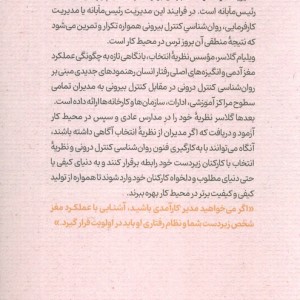 رئیس‌مآبانه است. در فرایند این مدیریتِ رئیس‌مآبانه یا مدیریت
کارفرمایی، روان‌شناسیِ کنترل بیرونی همواره تکرار و تمرین می‌شود
که نتیجهٔ منطقی آن بروز ترس در محیط کار است.
ویلیام گلاسر، مؤسس نظریهٔ انتخاب، با نگاهی تازه به چگونگی عملکرد
مغز آدمی و انگیزه‌های اصلی رفتار انسان رهنمودهای جدیدی مبتنی بر
روان‌شناسی کنترل درونی در مقابل کنترل بیرونی به مدیران تمامی
سطوح مراکز آموزشی، ادارات، سازمان‌ها و کارخانه‌ها ارائه داده است.
بعدها گلاسر نظریهٔ خود را در مدارس عادی و سپس در محیط کار
آزمود و دریافت که اگر مدیران از نظریهٔ انتخاب آگاهی داشته باشند،
آنگاه می‌توانند با به‌کارگیری فنون روان‌شناسی کنترل درونی و نظریهٔ
انتخاب با کارکنان زیردست خود رابطه برقرار کنند و به دنیای کیفی یا
حتی دنیای مطلوب و دلخواه کارکنان خود وارد شوند تا همواره از تولید
کیفی و کیفیت برتر در محیط کار بهره ببرند.
«اگر می‌خواهید مدیر کارآمدی باشید، آشنایی با عملکرد مغز
شخص زیردست شما و نظام رفتاری او باید در اولویت قرار گیرد.»